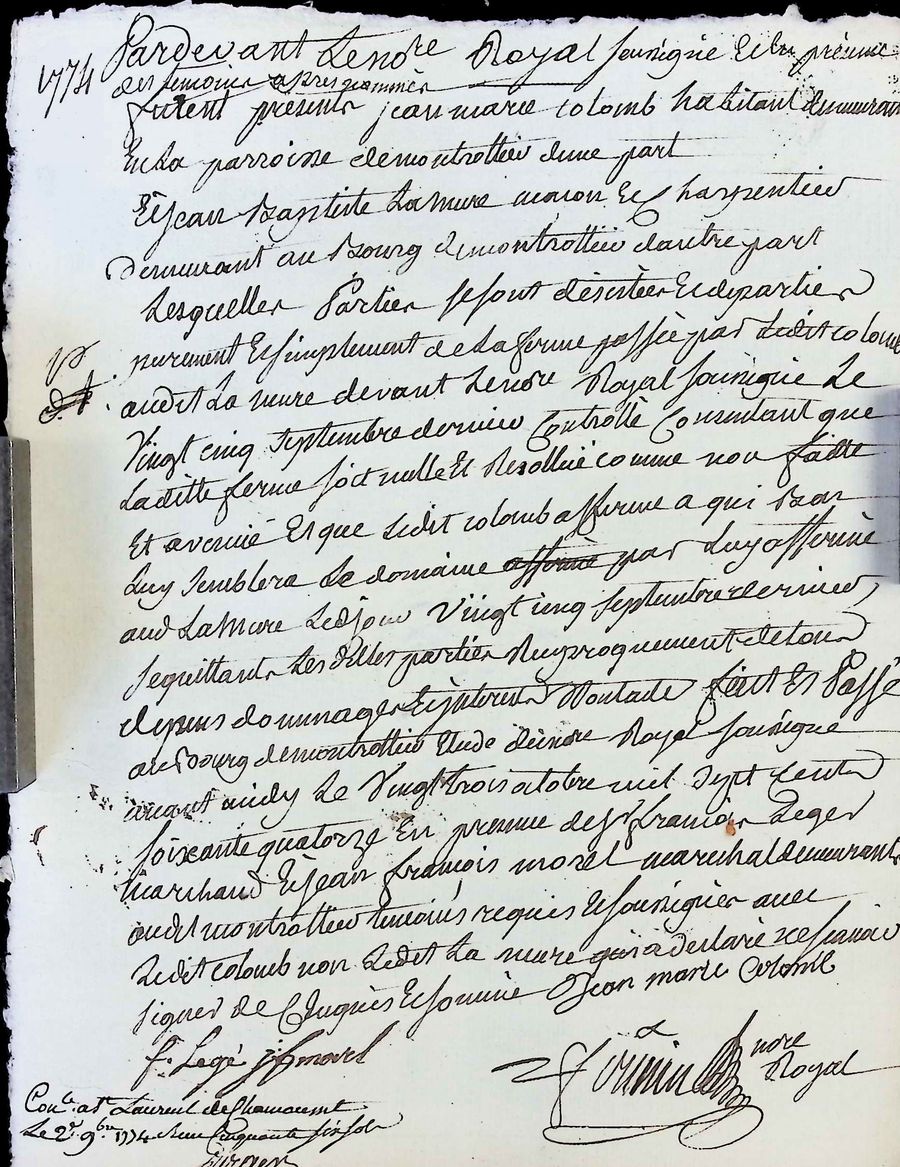 1774
Pardevant Le nore Royal soussigné Et en présence
des temoins apres nommés
furent presents jean marie colomb habitant demeurant
En La parroisse de montrottier dune part
Et jean Baptiste La mure macon Et Charpentier
Demeurant au Bourg de montrottier dautre part
Lesquelles Parties se sont désistées Et departies
purement Et simplement de La ferme passée par Ledit colomb
audit La mure devant Le nore Royal soussigné Le
Vingt cinq septembre dernier Controllé Consentant que
Laditte ferme soit nulle Et Resollüe comme non faitte
Et avenüe Et que Ledit colomb afferme a qui Bon
Luy semblera Le domaine affermé par Luy affermé
aud La Mure Led jour Vingt cinq septembre dernier
se quittants Les dittes parties Reciproquement de tous
depens dommages Et interets Fait Et Passé
au Bourg de montrottier Etude dud nore Royal soussigné
avant midy Le Vingt trois octobre mil sept cents
soixante quatorze En presence de sr françois Leger
Marchand Et jean françois morel marechal demeurants
audit montrottier temoins requis Et soussignés avec
Ledit colomb non Ledit La mure qui a declaré ne sçavoir
signer de Ce Enquis Et sommé Jean marie Colomb
f. Legé jfmorel
nore
Royal
Conlé a St Laurent de Chamousset
Le 2e 9bre 1774 Reçu Cinquante six sols